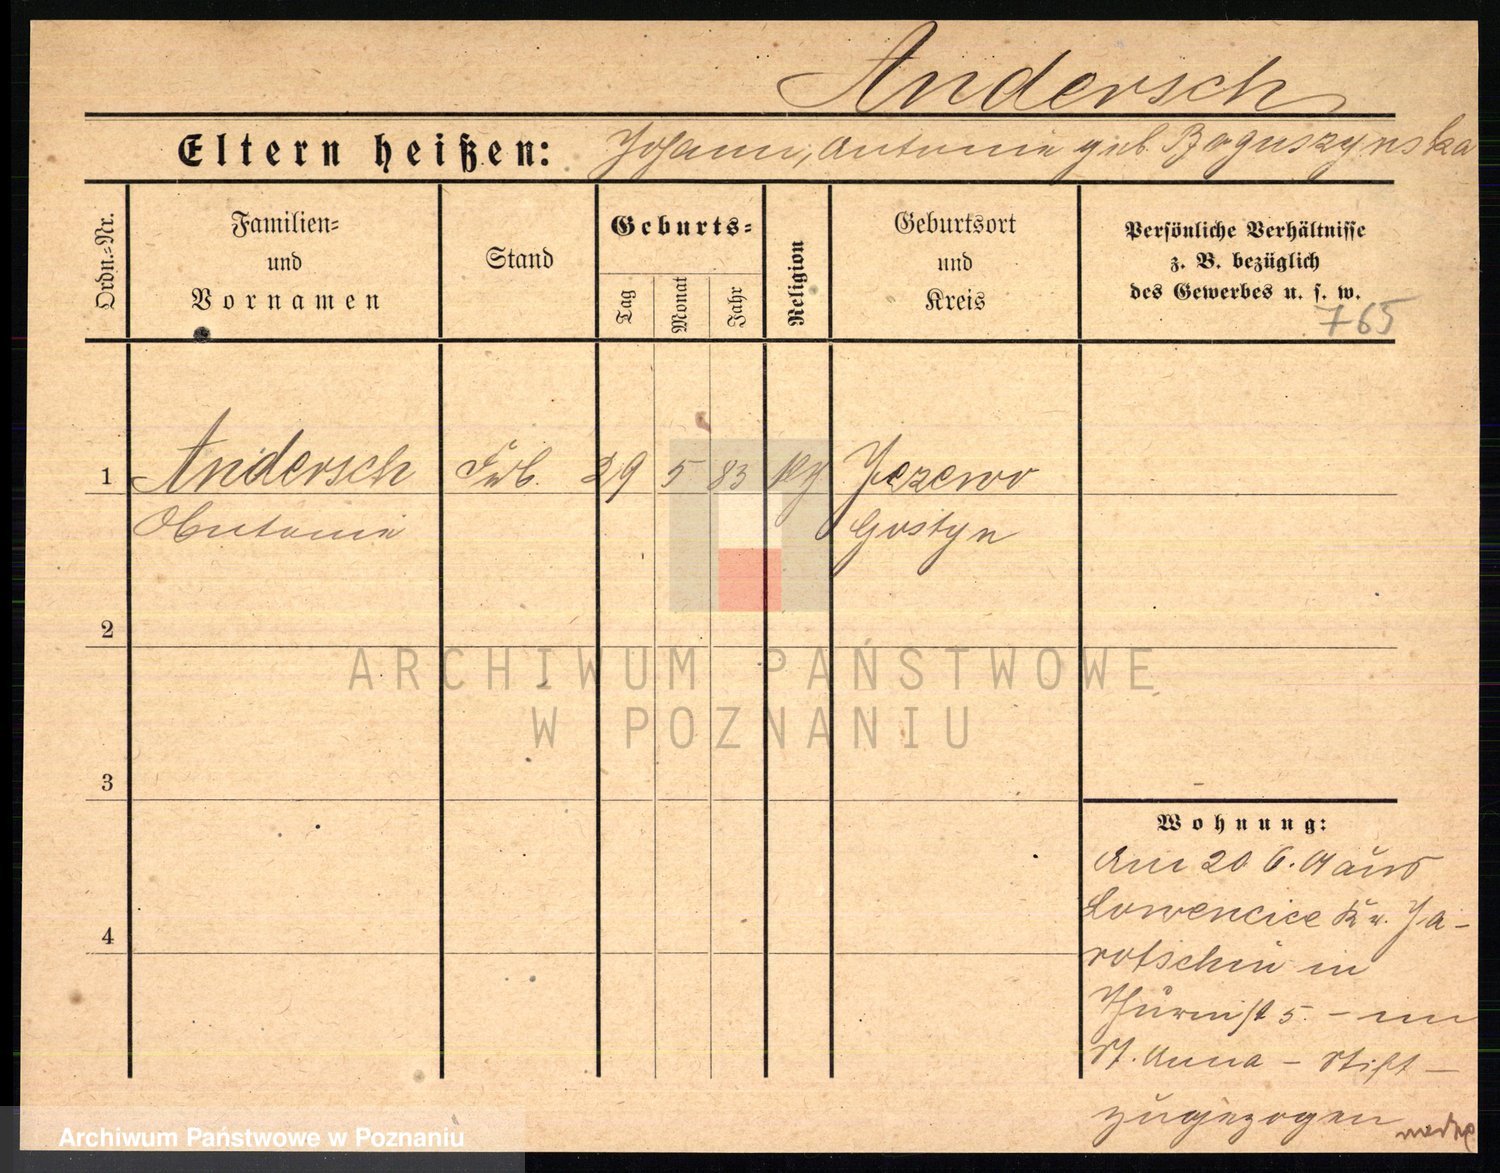 Andersch
Eltern heißen: Johann, Antonie geb. Boguszynska
Ordn.-Nr.
Familien-
und
Vornamen
Stand
Geburts-
Tag
Monat
Jahr
Religion
Geburtsort
und
Kreis
Persönliche Verhältnisse
z. B. bezüglich
des Gewerbes u. s. w.
765
1 Andersch 29 5 83 Jezewo
Antonie Gostyn
2
ARCHIWUM PAŃSTWOWE
W POZNANIU
3
Wohnung:
Am 20 6. aus
Lowencice Kr. Ja-
4
rotschin in
5 - im
St. Anna - Stift -
zugezogen
Archiwum Państwowe w Poznaniu